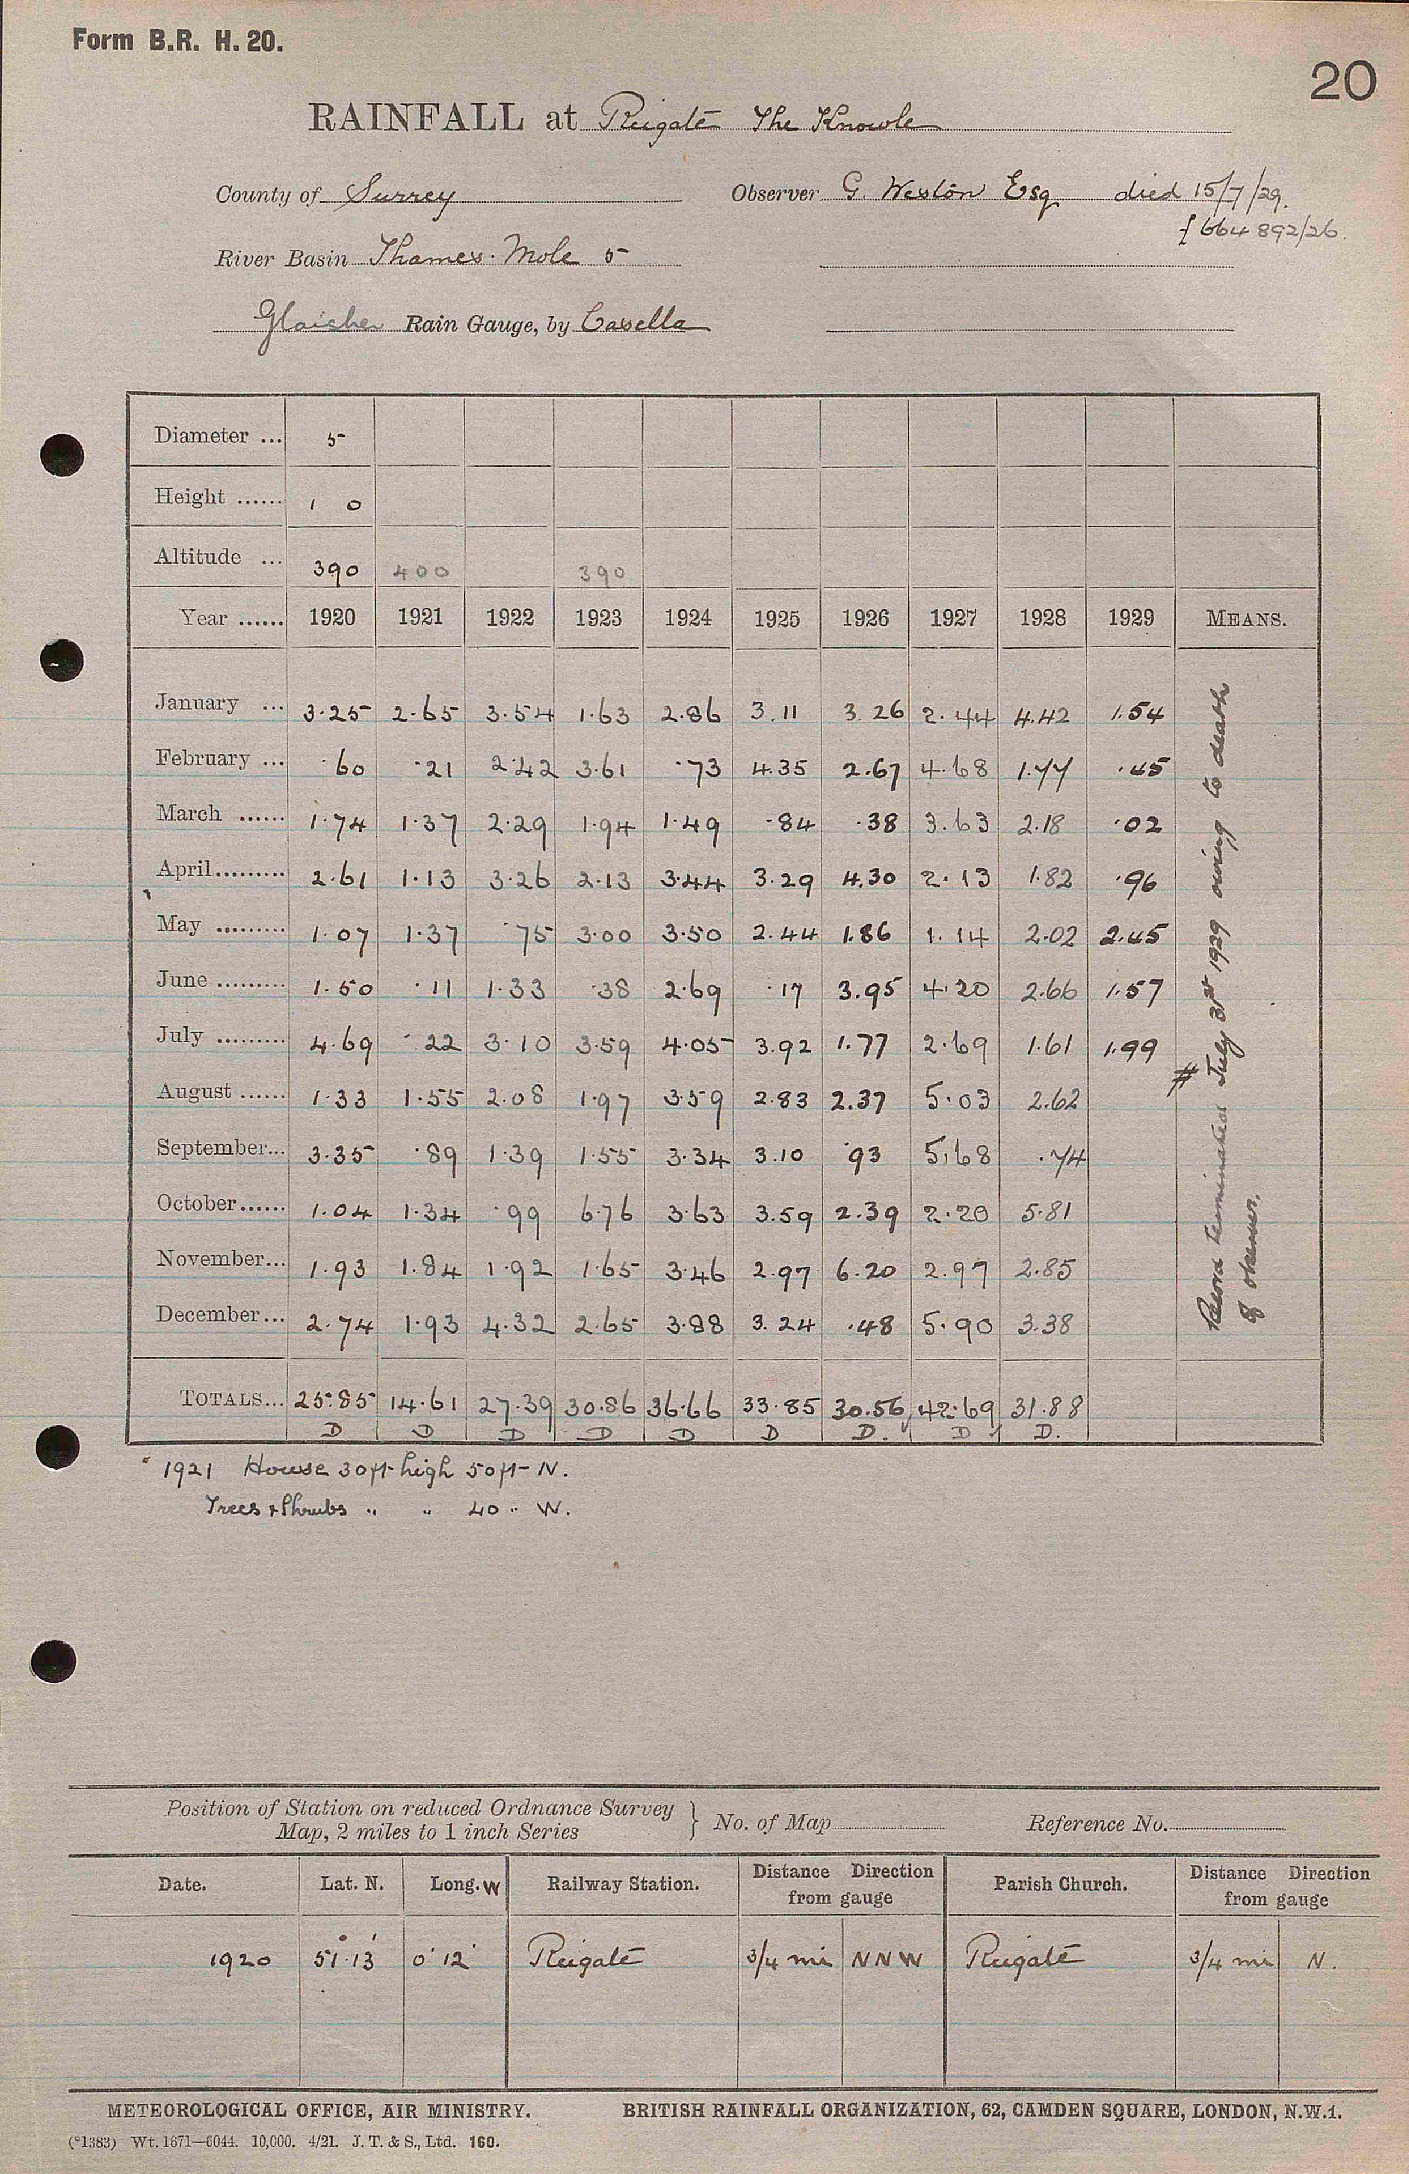 Form B.R. H. 20.
20
RAINFALL at Reigate The Knowle
County of Surrey Observer G. Weston Esq died 15/7/29.
{664892/26
River Basin Thames. Mole 5
Glaisher Rain Gauge, by Casella
Diameter ... 5
Height ...... 1 0
Altitude ... 390 400 390
Year ...... 1920 1921 1922 1923 1924 1925 1926 1927 1928 1929 MEANS.
January ... 3.25 2.65 3.54 1.63 2.86 3.11 3.26 2.44 4.42 1.54
February ... .60 .21 2.42 3.61 .73 4.35 2.67 4.68 1.77 .45
March ...... 1.74 1.37 2.29 1.94 1.49 .84 .38 3.63 2.18 .02
April......... 2.61 1.13 3.26 2.13 3.44 3.29 4.30 2.13 1.82 .96
May ......... 1.07 1.37 .75 3.00 3.50 2.44 1.86 1.14 2.02 2.45
June ......... 1.50 .11 1.33 .38 2.69 .17 3.95 4.20 2.66 1.57
July ......... 4.69 .22 3.10 3.59 4.05 3.92 1.77 2.69 1.61 1.99
August ...... 1.33 1.55 2.08 1.97 3.59 2.83 2.37 5.03 2.62
September... 3.35 .89 1.39 1.55 3.34 3.10 .93 5.68 .74
October...... 1.04 1.34 .99 6.76 3.63 3.59 2.39 2.20 5.81
November... 1.93 1.84 1.92 1.65 3.46 2.97 6.20 2.97 2.85
December... 2.74 1.93 4.32 2.65 3.88 3.24 .48 5.90 3.38
TOTALS... 25.85 14.61 27.39 30.86 36.66 33.85 30.56 42.69 31.88
D D D D D D D. D D.
# Record terminated July 31st 1929 owing to death
of observer.
1921 House 30ft high 50ft N.
Trees & Shrubs " " 40 " W.
Position of Station on reduced Ordnance Survey
Map, 2 miles to 1 inch Series } No. of Map Reference No.
Date. Lat. N. Long. W Railway Station. Distance Direction from gauge Parish Church. Distance Direction from gauge
1920 51° 13' 0° 12' Reigate 3/4 mi NNW Reigate 3/4 mi N.
METEOROLOGICAL OFFICE, AIR MINISTRY. BRITISH RAINFALL ORGANIZATION, 62, CAMDEN SQUARE, LONDON, N.W.1.
(*1383) Wt. 1671—6044. 10,000. 4/21. J. T. & S., Ltd. 160.